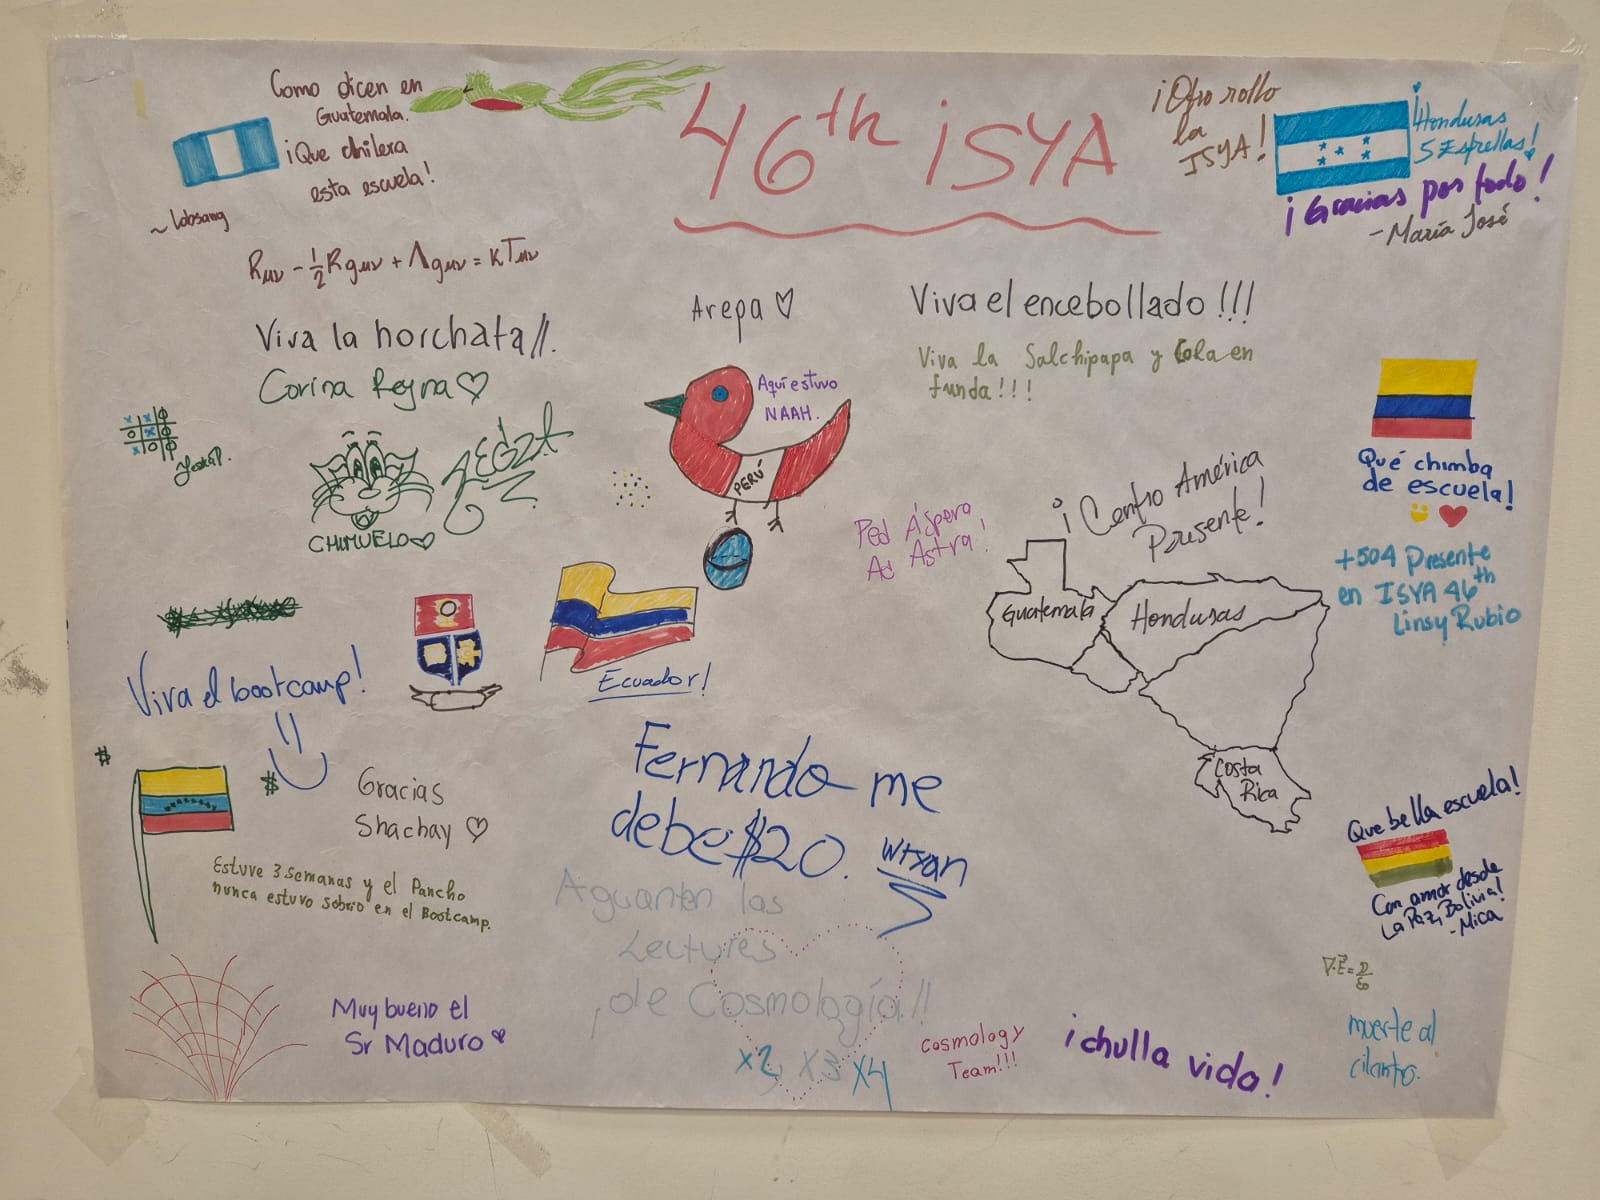 46th iSYA
Como dicen en
Guatemala.
¡Que chilera
esta escuela!
~ lobsang
¡Otro rollo
la
ISYA!
¡Honduras
5 Estrellas!
¡Gracias por todo!
- María José
Rμν - 1/2 Rgμν + Λgμν = κTμν
Viva la horchata//.
Corina Reyna ♡
Arepa ♡
Aquí estuvo
NAAH.
PERÚ
Viva el encebollado!!!
Viva la Salchipapa y Cola en
funda!!!
x x o
o x o
x o o
CHIMUELO ♡
Qué chimba
de escuela!
Ped Áspera
Ad Astra!
¡Centro América
Presente!
Guatemala
Honduras
Costa
Rica
+504 Presente
en ISYA 46th
Linsy Rubio
Viva el bootcamp!
Ecuador!
$
$
Gracias
Shachay ♡
Fernando me
debe $20.
Estuve 3 semanas y el Pancho
nunca estuvo sobrio en el Bootcamp.
Aguanten las
Lectures
de Cosmología!!
x2, x3 x4
Que bella escuela!
Con amor desde
La Paz, Bolivia!
- Mica
∇·E = ρ/ε₀
Muy bueno el
Sr Maduro ♥
Cosmology
Team!!!
¡chulla vida!
muerte al
cilantro.